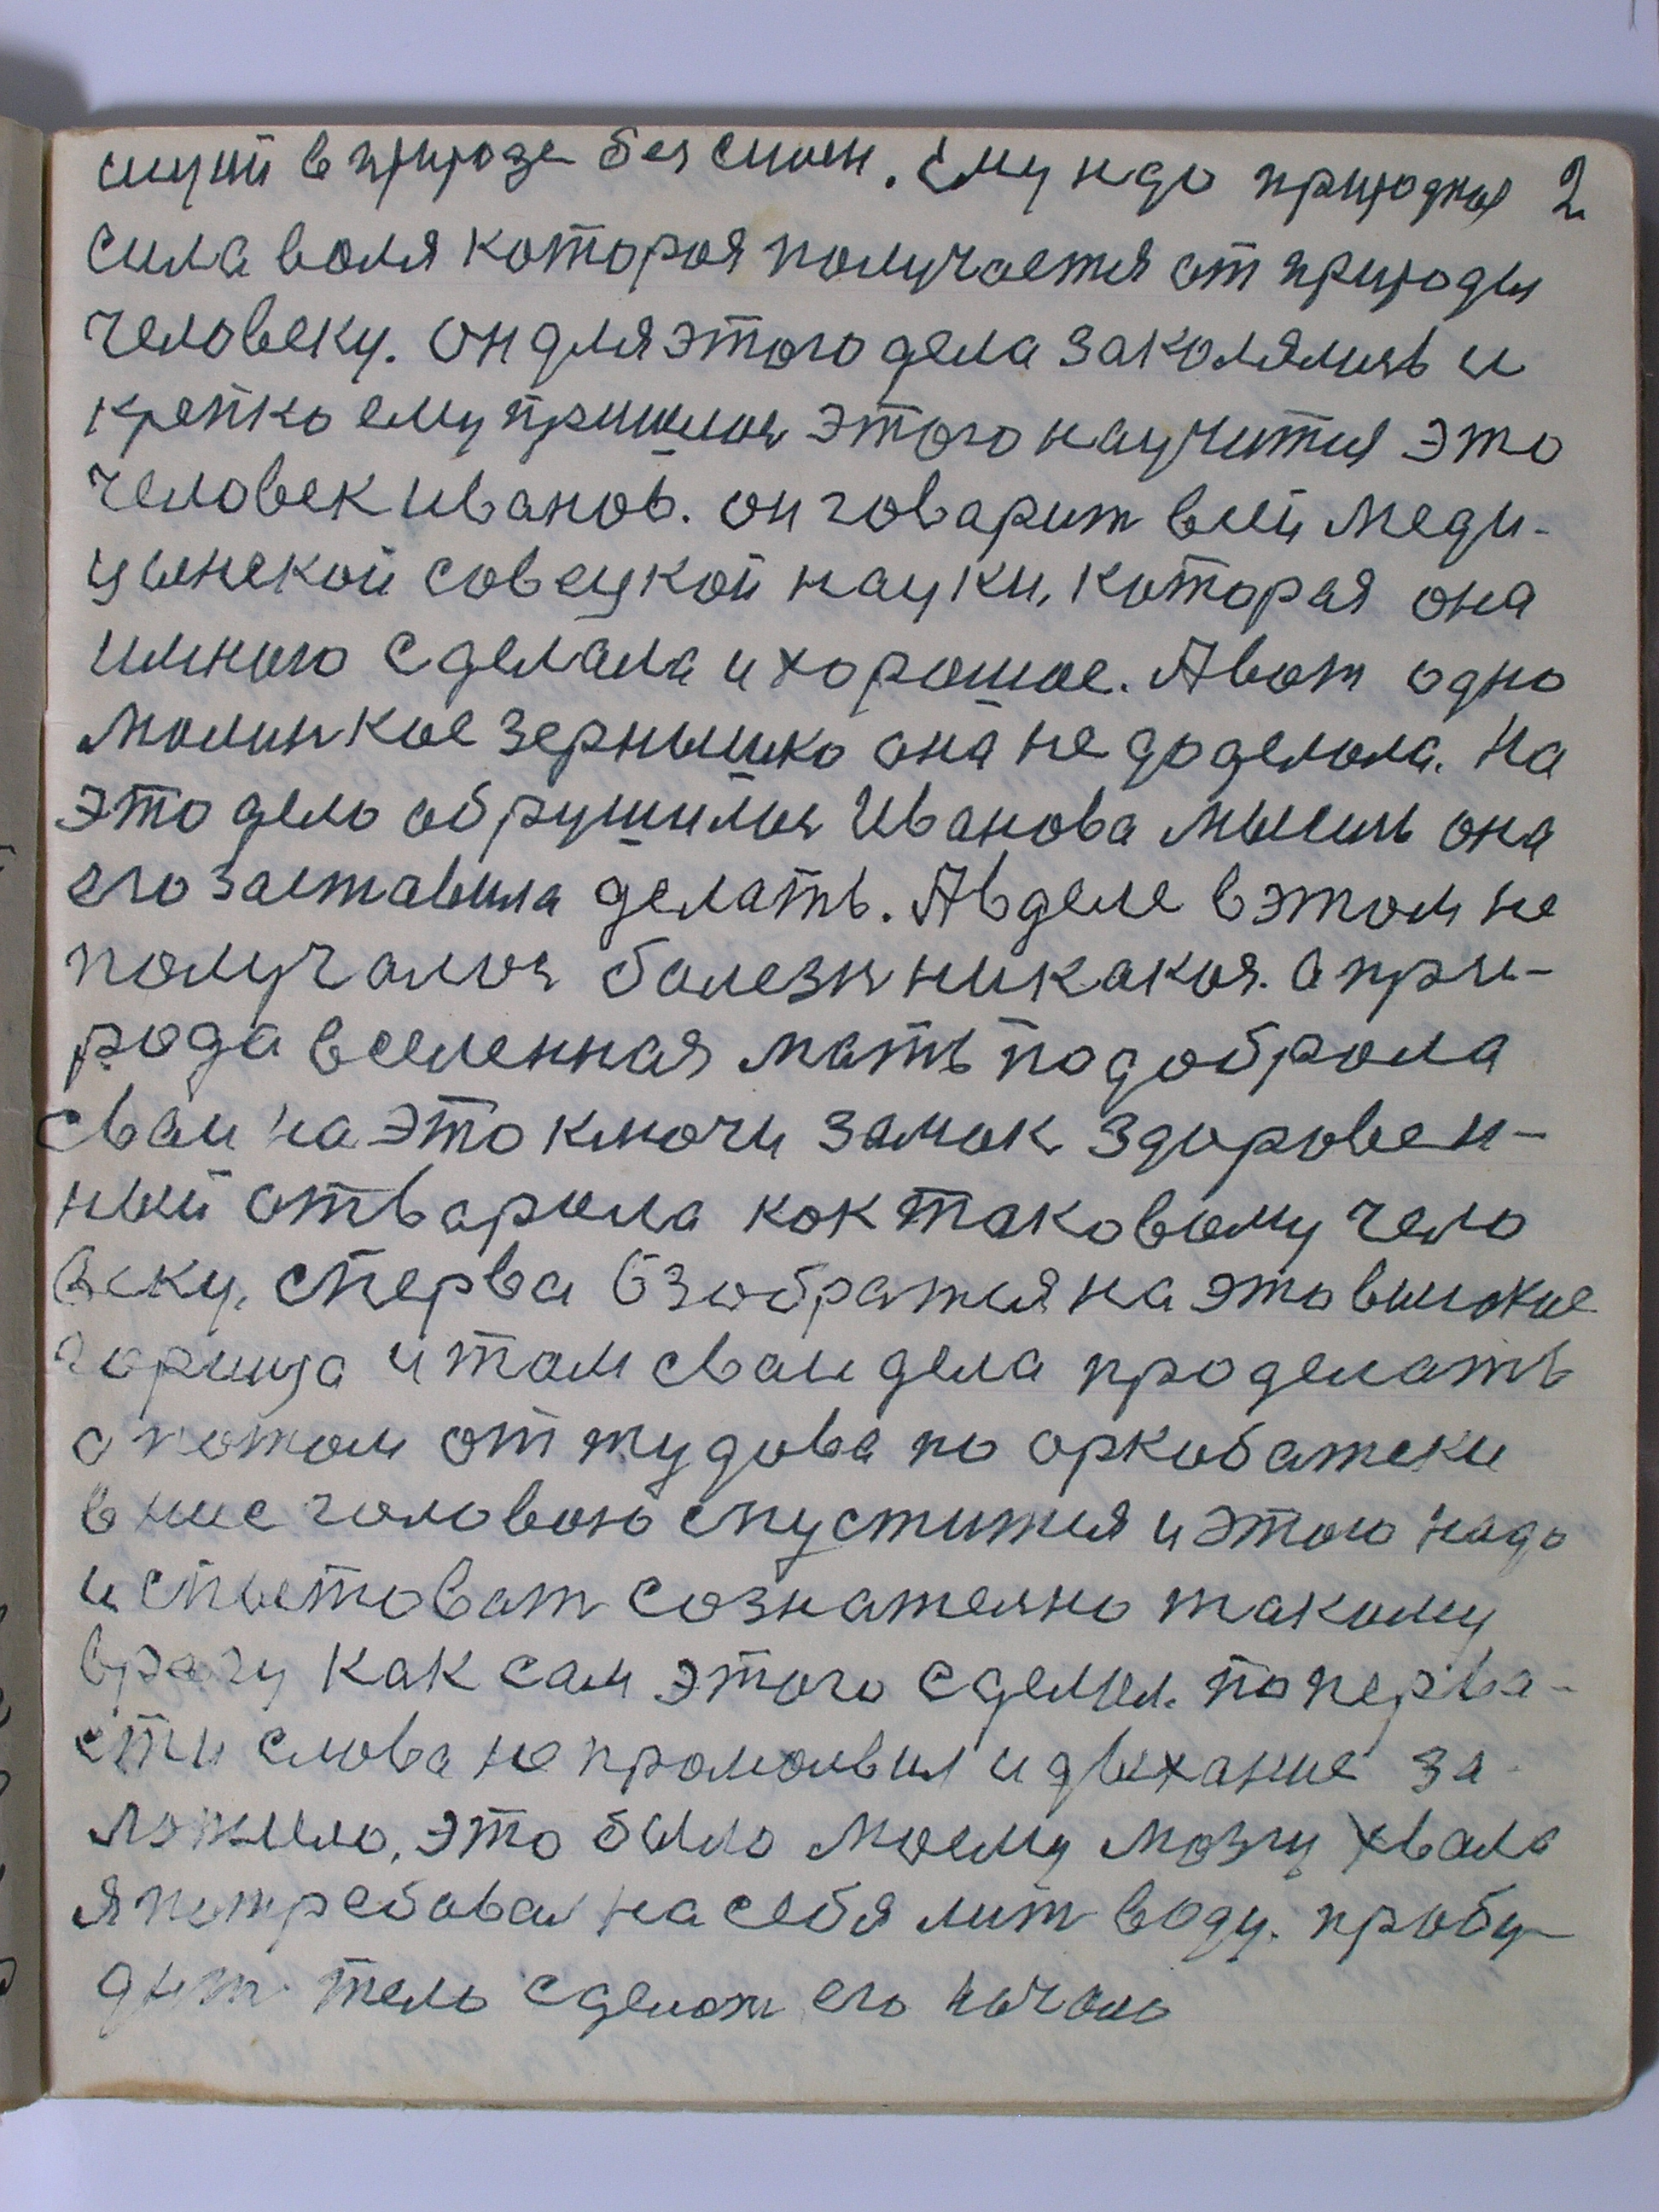 сщий в природе без силен. Ему надо природная 2
сила воля которая получается от природы
человеку. он для этого дела закалялись и
крепко ему пришлось этого научится это
человек иванов. он говарит всей меди-
цынской совецкой науки, которая она
много сделала и хорошое. А вот одно
молинкое зернышко она не доделола. На
это дело обрушилось Иванова мысиль она
его заставила делать. А в деле в этом не
получалось болезн никакоя. а при-
рода вселенная мать подоброла
сваи на это ключи замок здоровен-
ный отварила кок таковому чело
веку, сперва взобратся на это высокое
горища и там сваи дела проделать
а потом оттудова по аркобатски
в нис головою спустится и этого надо
испытоват сознателно такому
врачу как сам этого сделал. по перва-
сти слова не промолвил и дыхание за-
ложило, это было моему мозгу хвала
я потребовал на себя лит воду. пробу-
дит тело сделат его начало